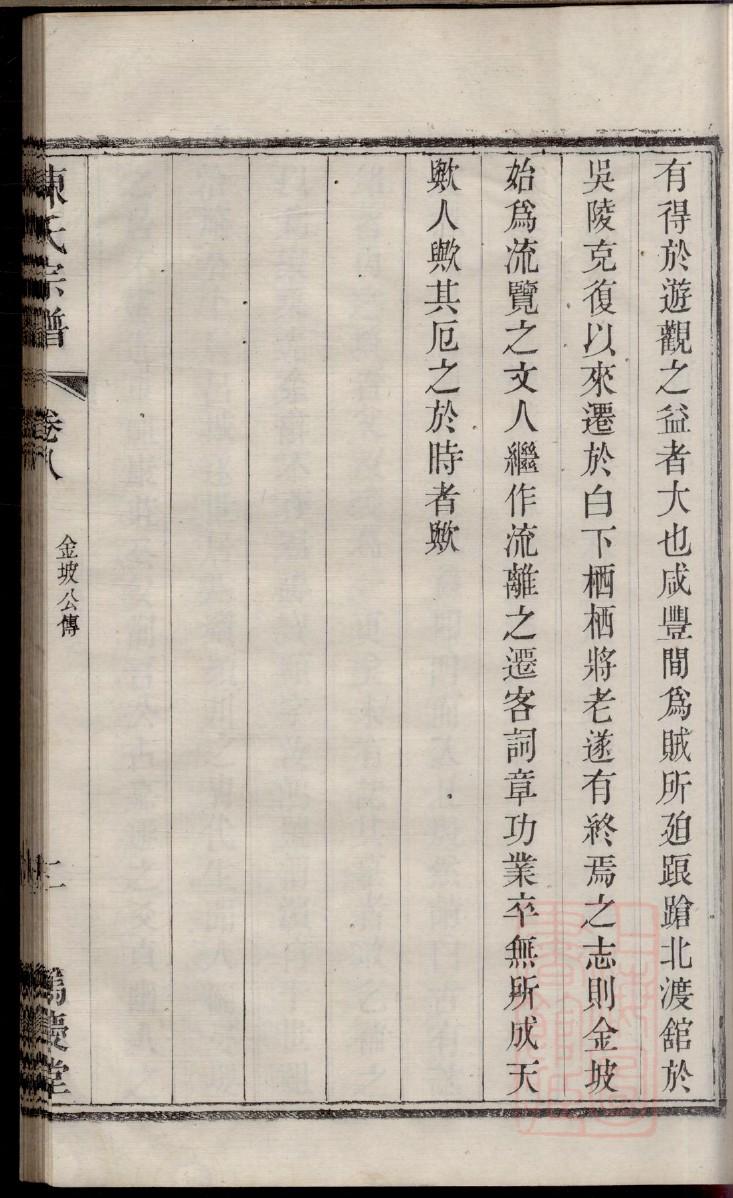 有得於遊觀之益者大也咸豐間爲賊所廹踉蹌北渡舘於
吳陵克復以來遷於白下栖栖將老遂有終焉之志則金坡
始爲流覽之文人繼作流離之遷客詞章功業卒無所成天
歟人歟其厄之於時者歟
陳氏宗譜
卷八
金坡公傳
二
篤慶堂